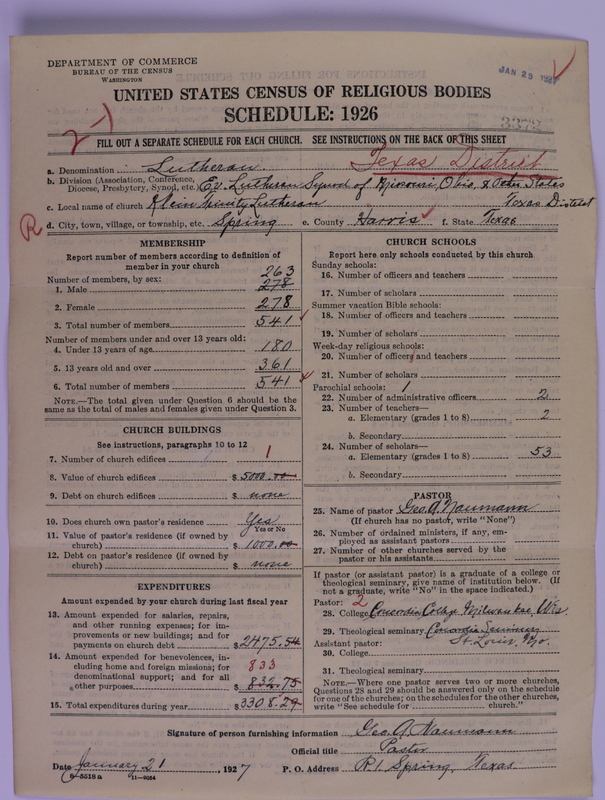 DEPARTMENT OF COMMERCE
BUREAU OF THE CENSUS
WASHINGTON
JAN 25 1927
UNITED STATES CENSUS OF RELIGIOUS BODIES
SCHEDULE: 1926
3372
2-1
FILL OUT A SEPARATE SCHEDULE FOR EACH CHURCH. SEE INSTRUCTIONS ON THE BACK OF THIS SHEET
a. Denomination Lutheran Texas District
b. Division (Association, Conference, Diocese, Presbytery, Synod, etc.) Ev. Lutheran Synod of Missouri, Ohio, & Other States
c. Local name of church Klein Trinity Lutheran Texas District
R d. City, town, village, or township, etc. Spring e. County Harris f. State Texas
MEMBERSHIP
Report number of members according to definition of
member in your church
Number of members, by sex: 263
1. Male 278
2. Female 278
3. Total number of members 541
Number of members under and over 13 years old:
4. Under 13 years of age 180
5. 13 years old and over 361
6. Total number of members 541
NOTE.—The total given under Question 6 should be the
same as the total of males and females given under Question 3.
CHURCH BUILDINGS
See instructions, paragraphs 10 to 12
7. Number of church edifices 1
8. Value of church edifices $ 5000.00
9. Debt on church edifices $ none
10. Does church own pastor's residence Yes
Yes or No
11. Value of pastor's residence (if owned by
church) $ 1000.00
12. Debt on pastor's residence (if owned by
church) $ none
EXPENDITURES
Amount expended by your church during last fiscal year
13. Amount expended for salaries, repairs,
and other running expenses; for im-
provements or new buildings; and for
payments on church debt $ 2475.54
14. Amount expended for benevolences, in-
cluding home and foreign missions; for 833
denominational support; and for all
other purposes $ 832.75
15. Total expenditures during year $ 3308.29
CHURCH SCHOOLS
Report here only schools conducted by this church
Sunday schools:
16. Number of officers and teachers
17. Number of scholars
Summer vacation Bible schools:
18. Number of officers and teachers
19. Number of scholars
Week-day religious schools:
20. Number of officers and teachers
21. Number of scholars
Parochial schools: 1
22. Number of administrative officers 2
23. Number of teachers—
a. Elementary (grades 1 to 8) 2
b. Secondary
24. Number of scholars—
a. Elementary (grades 1 to 8) 53
b. Secondary
PASTOR
25. Name of pastor Geo. A. Naumann
(If church has no pastor, write "None")
26. Number of ordained ministers, if any, em-
ployed as assistant pastors
27. Number of other churches served by the
pastor or his assistants
If pastor (or assistant pastor) is a graduate of a college or
theological seminary, give name of institution below. (If
not a graduate, write "No" in the space indicated.)
Pastor: 2
28. College Concordia College, Milwaukee, Wis.
29. Theological seminary Concordia Seminary
Assistant pastor: St. Louis, Mo.
30. College
31. Theological seminary
NOTE.—Where one pastor serves two or more churches,
Questions 28 and 29 should be answered only on the schedule
for one of the churches; on the schedules for the other churches,
write "See schedule for church."
Signature of person furnishing information Geo. A. Naumann
Official title Pastor
Date January 21, 1927 P. O. Address R1. Spring, Texas
8—5518 a 11—9064